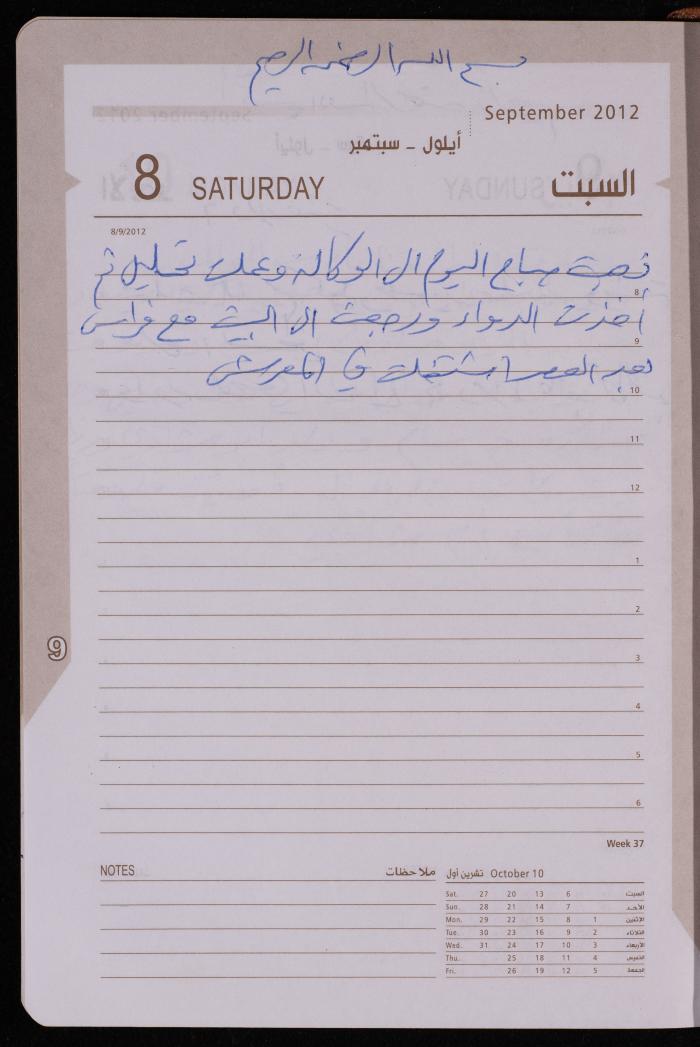 بسم الله الرحمن الرحيم
September 2012
أيلول - سبتمبر
8 SATURDAY السبت
8/9/2012
ذهبت صباح اليوم الى الوكالة وعملت تحليل ثم
8
أخذت الدواء ورجعت الى البيت مع فراس
9
بعد العصر اشتغلت في المعرش
10
11
12
1
2
9
3
4
5
6
Week 37
NOTES ملاحظات
October 10 تشرين أول
Sat. 27 20 13 6 السبت
Sun. 28 21 14 7 الأحد
Mon. 29 22 15 8 1 الإثنين
Tue. 30 23 16 9 2 الثلاثاء
Wed. 31 24 17 10 3 الأربعاء
Thu. 25 18 11 4 الخميس
Fri. 26 19 12 5 الجمعة